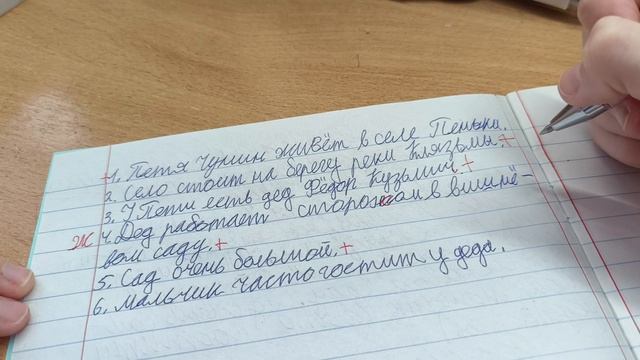 1. Петя Чумин живёт в селе Пеньки.
2. Село стоит на берегу реки Клязьмы. +
3. У Пети есть дед Фёдор Кузьмич. +
Ж 4. Дед работает сторожом в вишнё-
вом саду. +
5. Сад очень большой. +
6. Мальчик часто гостит у деда.